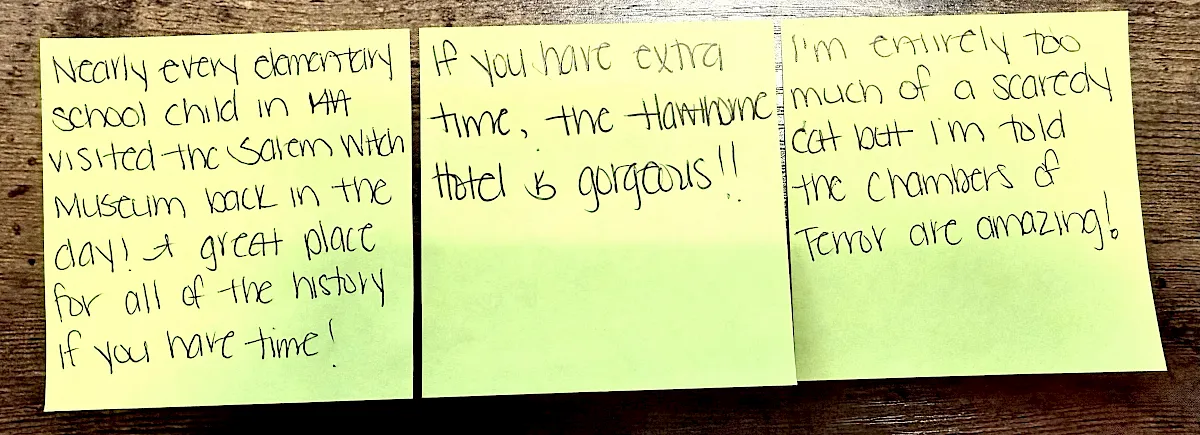 Nearly every elementary
school child in MA
visited the Salem Witch
Museum back in the
day! A great place
for all of the history
if you have time!
If you have extra
time, the Hawthorne
Hotel is gorgeous!!
I'm entirely too
much of a scaredy
cat but I'm told
the Chambers of
Terror are amazing!